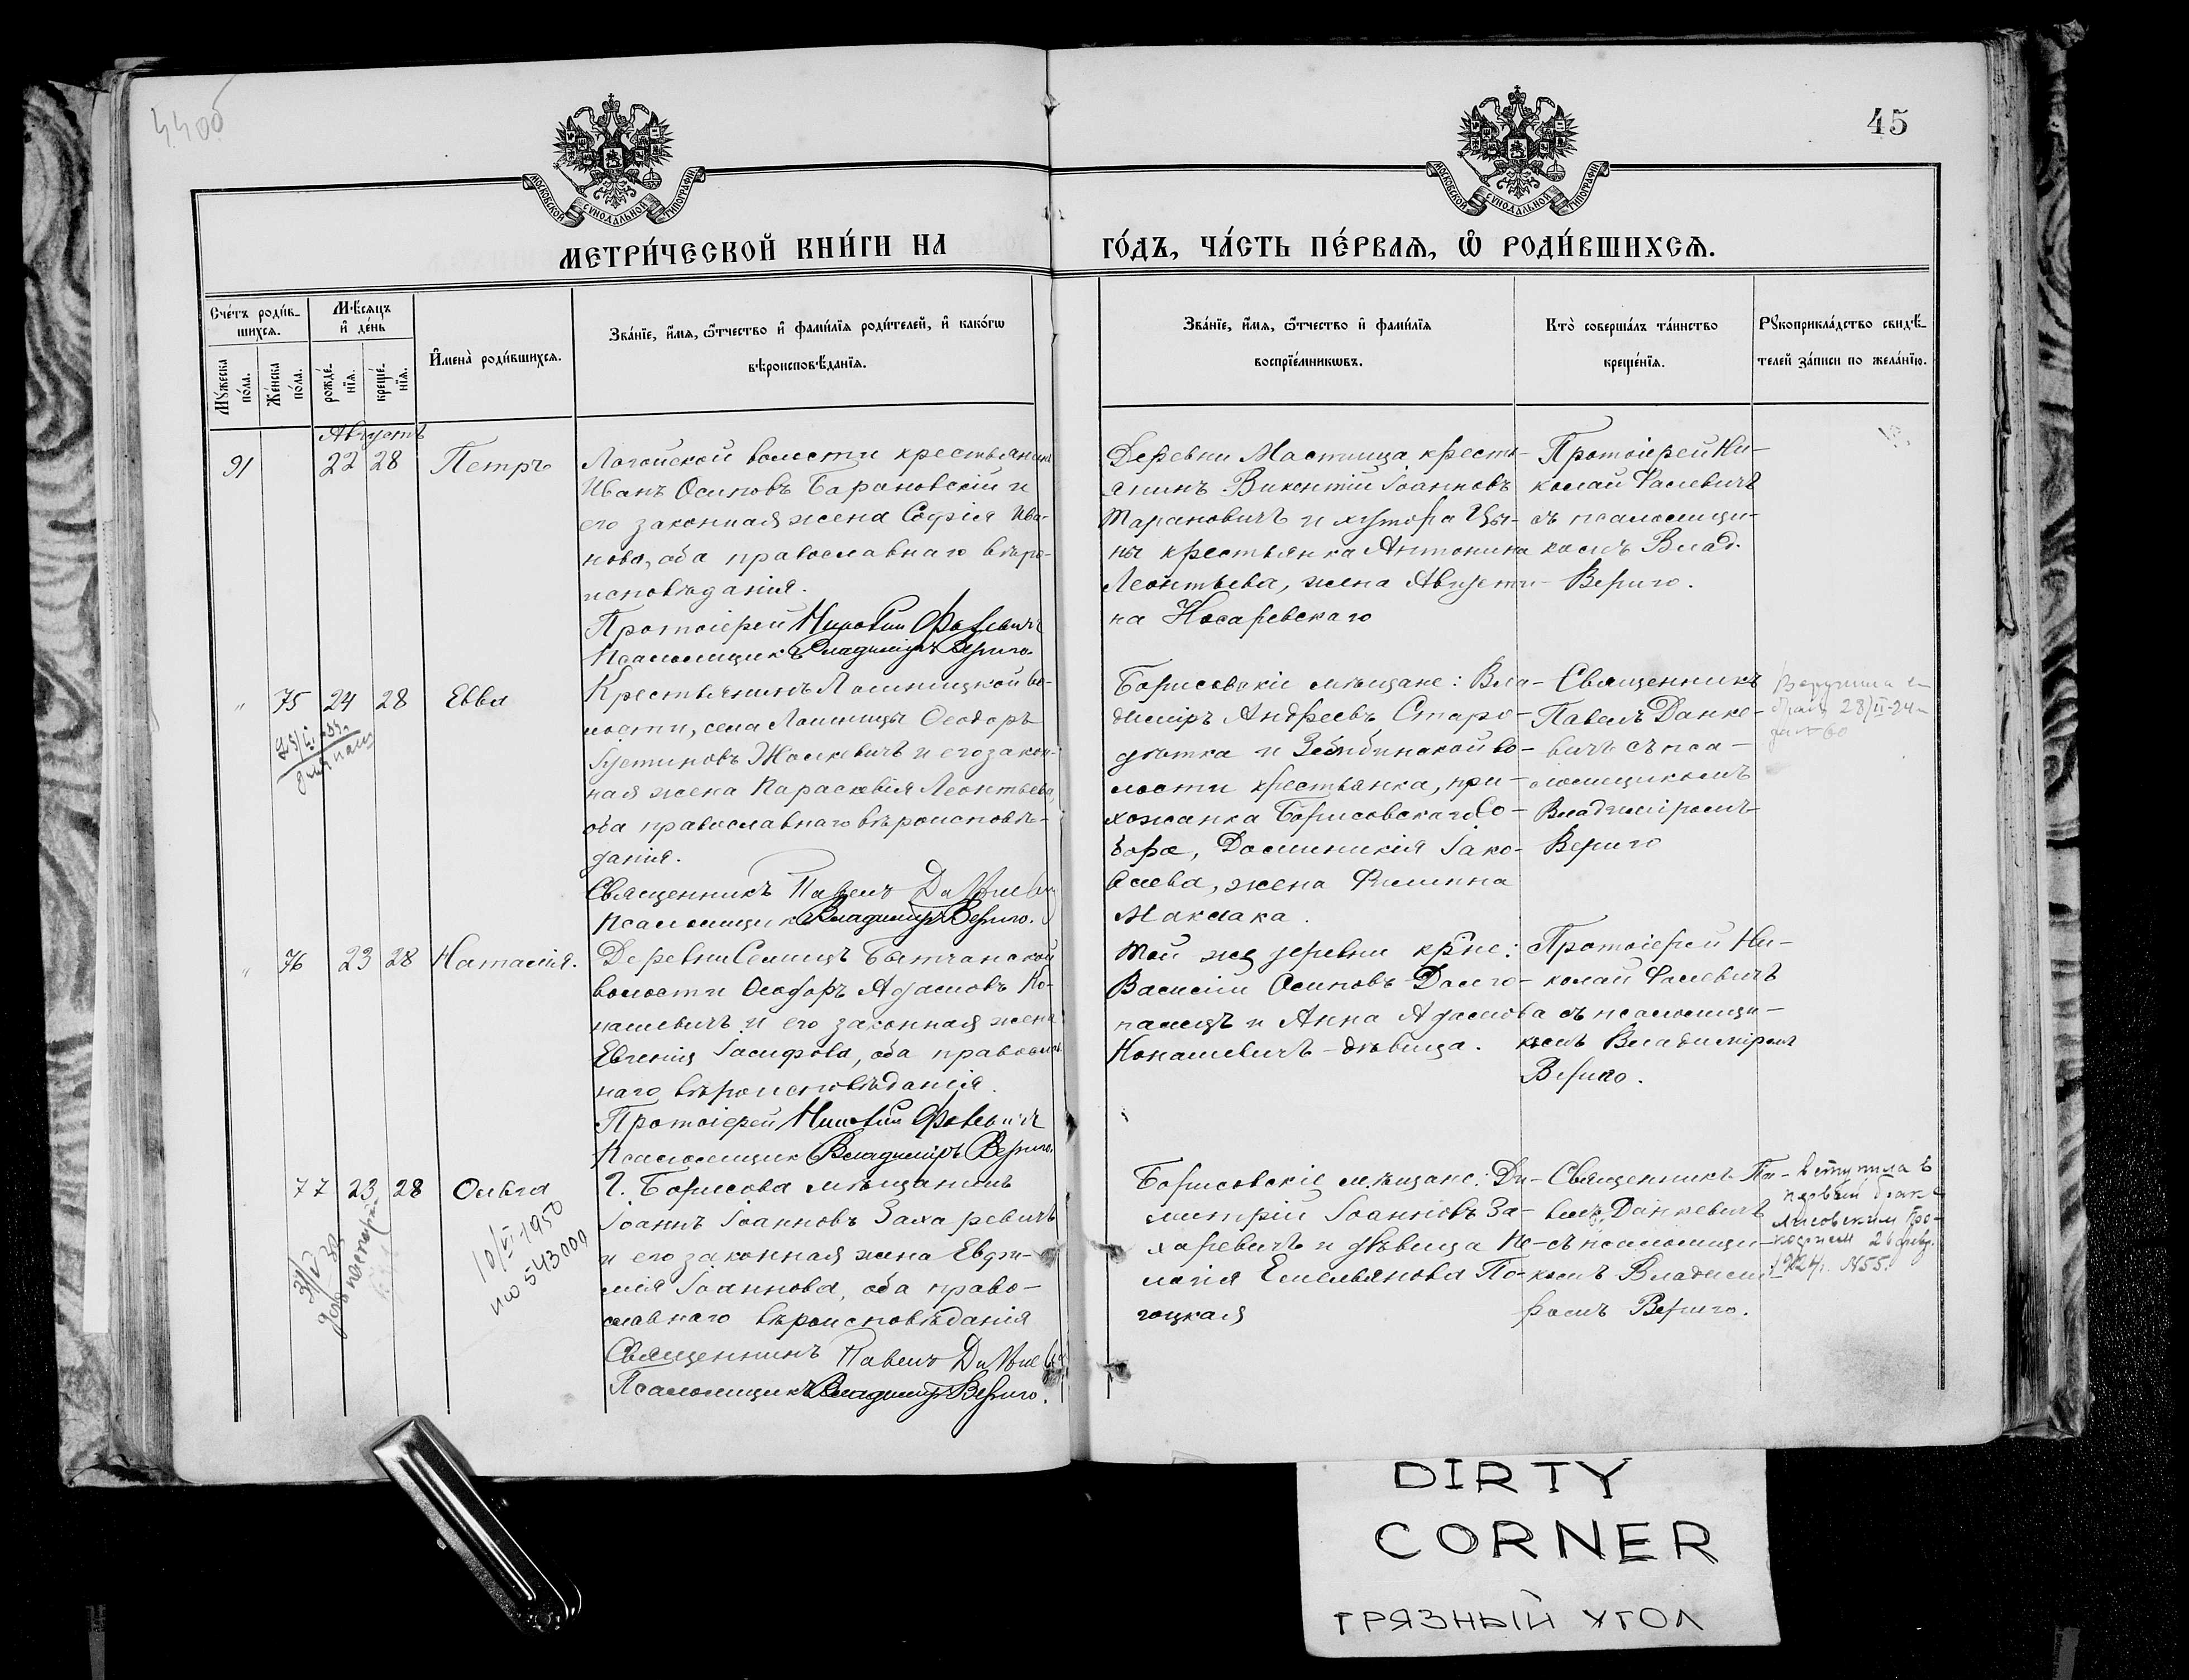 44об
45
МОСКОВСКОЙ СѴНОДАЛЬНОЙ ТИПОГРАФІИ
МОСКОВСКОЙ СѴНОДАЛЬНОЙ ТИПОГРАФІИ
МЕТРИ́ЧЕСКОЙ КНИ́ГИ НА
ГО́ДЪ, ЧА́СТЬ ПЕ́РВАѦ, Ѡ҆ РОДИ́ВШИХСѦ.
Сче́тъ роди́в-
шихсѧ.
Мꙋ́жеска
по́ла.
Же́нска
по́ла.
Мѣ́сѧцъ
и҆ де́нь
рожде́-
нїѧ.
креще́-
нїѧ.
И҆мена̀ роди́вшихсѧ.
Зва́нїе, и҆́мѧ, ѻ҆́тчество и҆ фами́лїѧ роди́телей, и҆ како́гѡ
вѣроисповѣ́данїѧ.
Зва́нїе, и҆́мѧ, ѻ҆́тчество и҆ фами́лїѧ
воспрїе́мникѡвъ.
Кто̀ соверша́лъ та́инство
креще́нїѧ.
Рꙋкоприкла́дство свидѣ́-
телей за́писи по жела́нїю.
Августъ
91 22 28 Петръ
Логойской волости крестьянинъ
Иванъ Осиповъ Барановскій и
его законная жена Софія Ива-
нова, оба православнаго вѣро-
исповѣданія.
Протоіерей Николай Фалевичъ
Псаломщикъ Владиміръ Вериго.
Деревни Мостища кресть-
янинъ Викентій Іоанновъ
Тарановичъ и хутора Цы-
ны крестьянка Антонина
Леонтьева, жена Августи-
на Носаревскаго
Протоіерей Ни-
колай Фалевичъ
съ псаломщи-
комъ Влад.
Вериго.
" 75 24 28 Евва
для пасп
Крестьянинъ Лошницкой во-
лости, села Лошницы Ѳеодоръ
Іустиновъ Жалкевичъ и его закон-
ная жена Параскевія Леонтьева,
оба православнаго вѣроисповѣ-
данія.
Священникъ Павелъ Данкевичъ
Псаломщикъ Владиміръ Вериго.
Борисовскіе мѣщане: Вла-
диміръ Андреевъ Старо-
дѣтка и Зембинской во-
лости крестьянка, при-
хожанка Борисовскаго Со-
бора, Доминикія Іако-
влева, жена Филиппа
Маклака.
Священникъ
Павелъ Данке-
вичъ съ пса-
ломщикомъ
Владиміромъ
Вериго
" 76 23 28 Наталія.
Деревни Селицъ Бытчанской
волости Ѳеодоръ Адамовъ Ко-
нашевичъ и его законная жена
Евгенія Іосифова, оба православ-
наго вѣроисповѣданія.
Протоіерей Николай Фалевичъ
Псаломщикъ Владиміръ Вериго.
Той же деревни крне:
Василій Осиповъ Долго-
палецъ и Анна Адамова
Конашевичъ - дѣвица.
Протоіерей Ни-
колай Фалевичъ
съ псаломщи-
комъ Владиміромъ
Вериго.
77 23 28 Ольга
10/VI-1950
по 543000
Г. Борисова мѣщанинъ
Іоаннъ Іоанновъ Захаревичъ
и его законная жена Евфи-
мія Іоаннова, оба право-
славнаго вѣроисповѣданія
Священникъ Павелъ Данкевичъ
Псаломщикъ Владиміръ Вериго.
Борисовскіе мѣщане: Ди-
митрій Іоанновъ За-
харевичъ и дѣвица Пе-
лагія Емельянова По-
гоцкая
Священникъ Па-
велъ Данкевичъ
съ псаломщи-
комъ Владимі-
ромъ Вериго.
Вступила в
первый брак с
1924г. №55.
DIRTY
CORNER
ГРЯЗНЫЙ УГОЛ